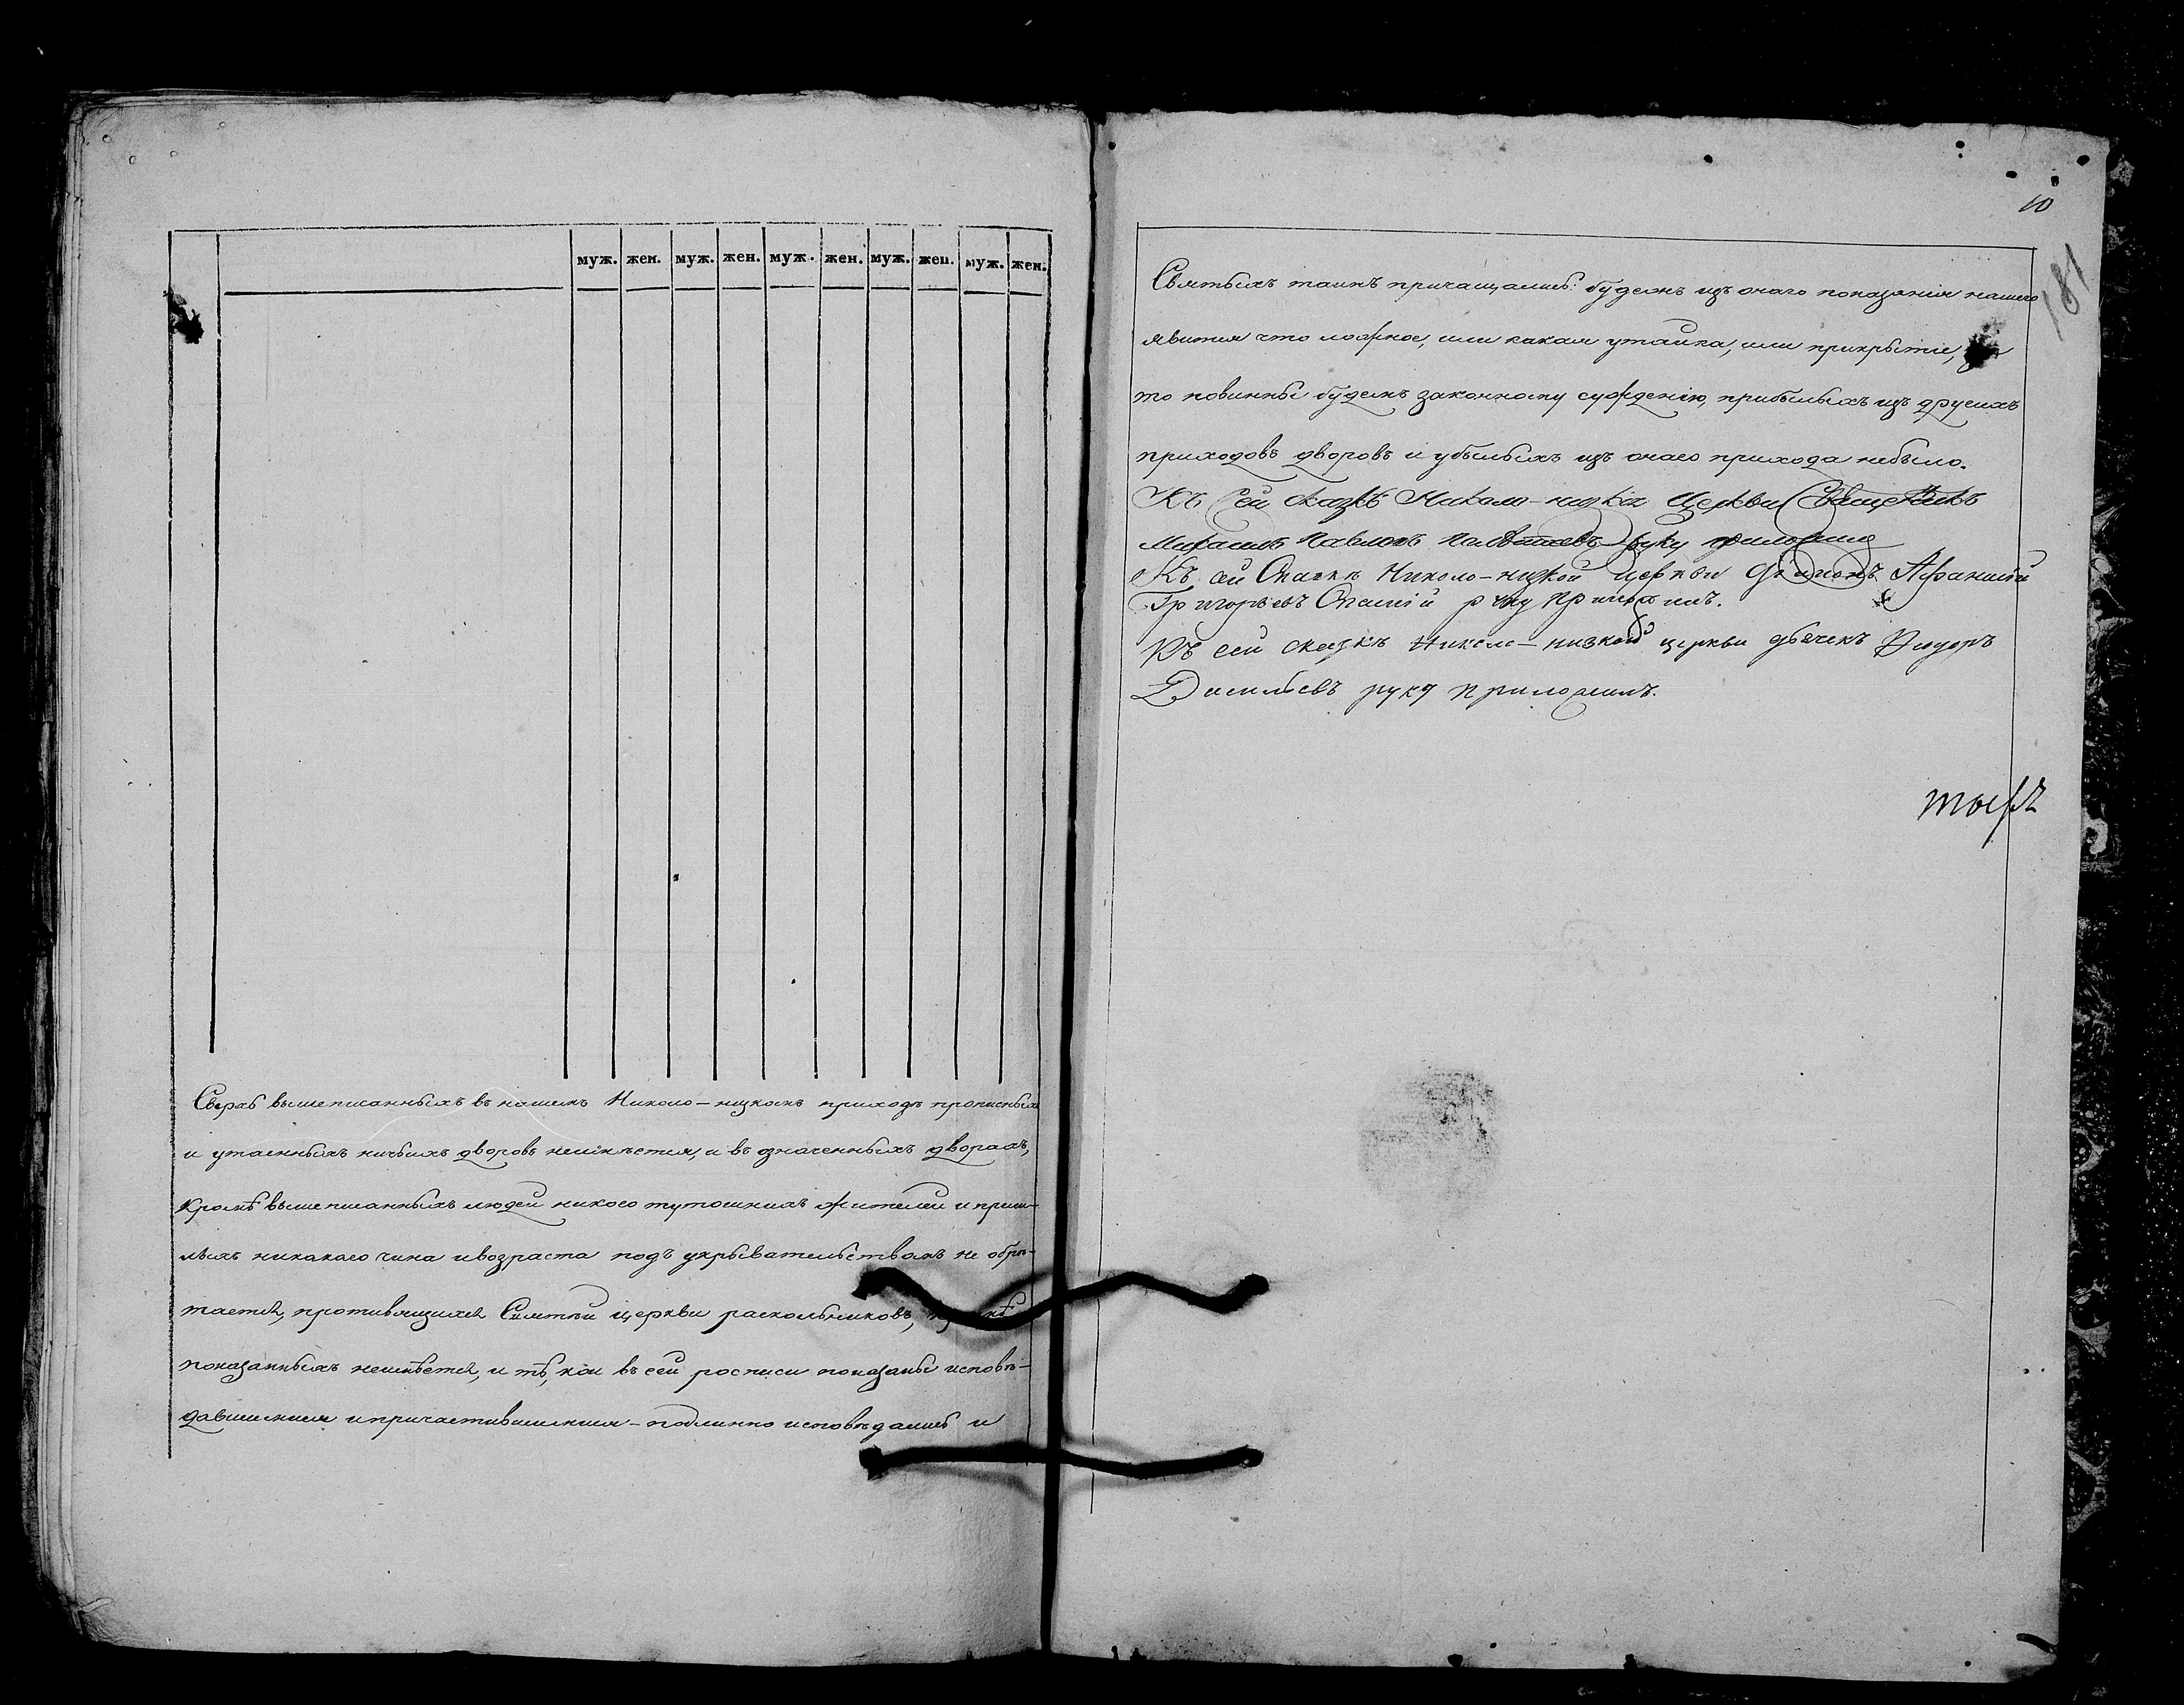 муж. жен. муж. жен. муж. жен. муж. жен. муж. жен.
Сверхъ вышеписанныхъ въ нашемъ Николо-низкомъ приходѣ прописныхъ
и утаенныхъ ничьихъ дворовъ неимѣется, и въ означенныхъ дворахъ,
кромѣ вышеписанныхъ людей никого тутошнихъ жителей и приш-
лыхъ никакого чина и возраста подъ укрывательствомъ не обрѣ-
тается, противящихся Святѣй церкви раскольниковъ, кромѣ
показанныхъ неимѣется, и тѣ, кои въ сей росписи показаны исповѣ-
давшимися и причастившимися - подлинно исповѣдались и
10
181
Святыхъ таинъ причащались: будежъ изъ онаго показанія нашего
явится что ложное, или какая утайка, или прикрытіе, за
то повинны будемъ законному сужденію, прибылыхъ изъ другихъ
приходовъ дворовъ и убылыхъ изъ онаго прихода небыло.
Къ сей сказкѣ Николо-низкія Церкви Священникъ
Михаилъ Павловъ руку приложилъ
Къ сей Сказкѣ Николо-низкой церкви Аѳанасій
Григорьевъ Спаскій руку приложилъ.
Къ сей сказкѣ Николо-низкой церкви дьячекъ Ѳиодоръ
Васильевъ руку приложилъ.